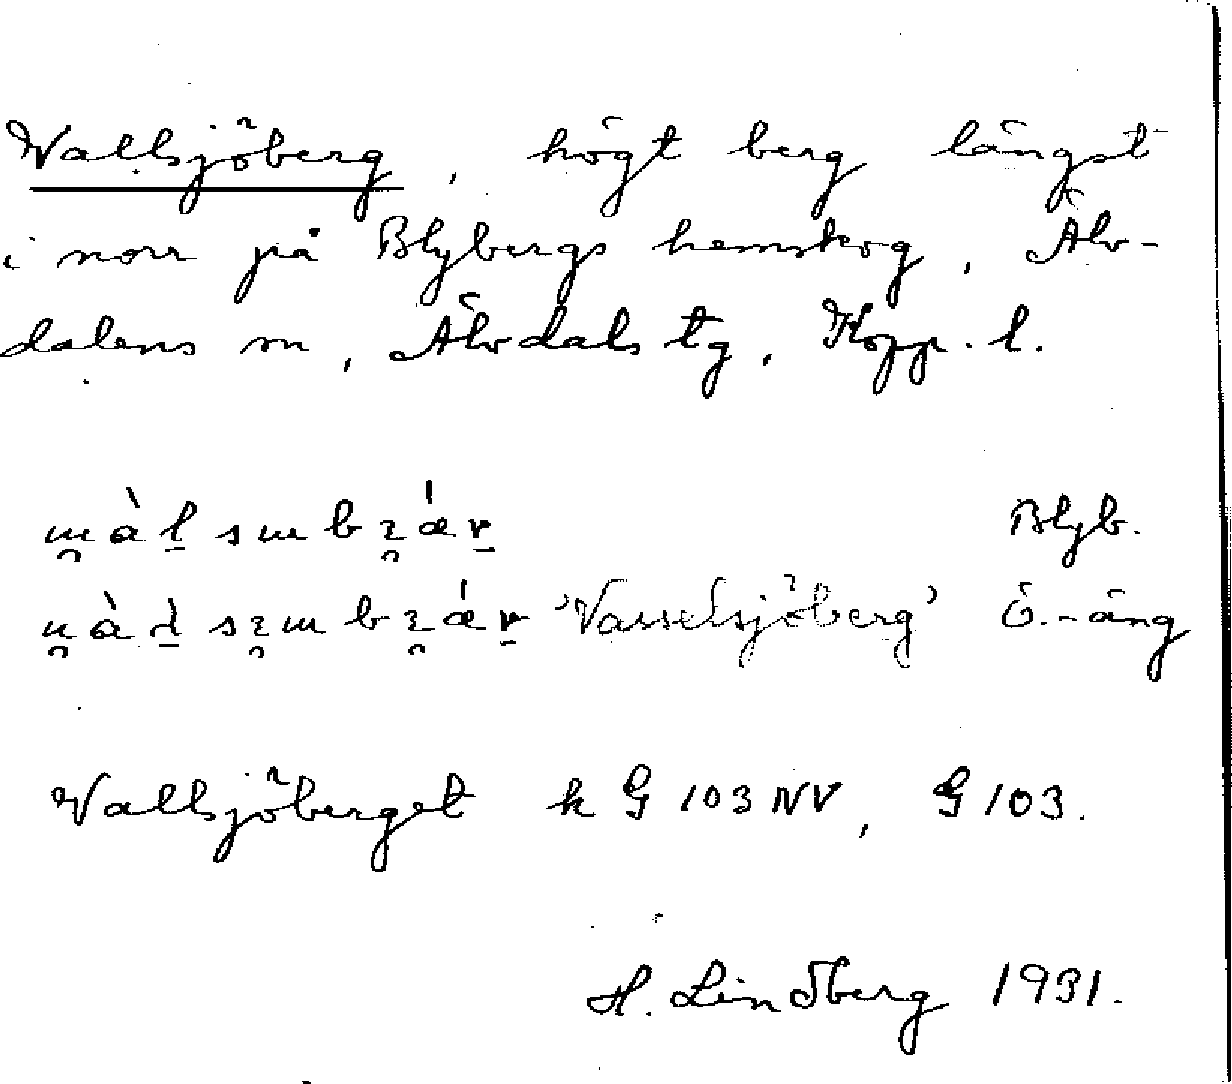 Vallsjöberg, högt berg längst
i norr på Blybergs hemskog, Älv-
dalens sn, Älvdals tg, Kopp. l.
Blyb.
'Vasselsjöberg' Ö.-äng
Vallsjöberget k G 103 NV, G 103.
H. Lindberg 1931.